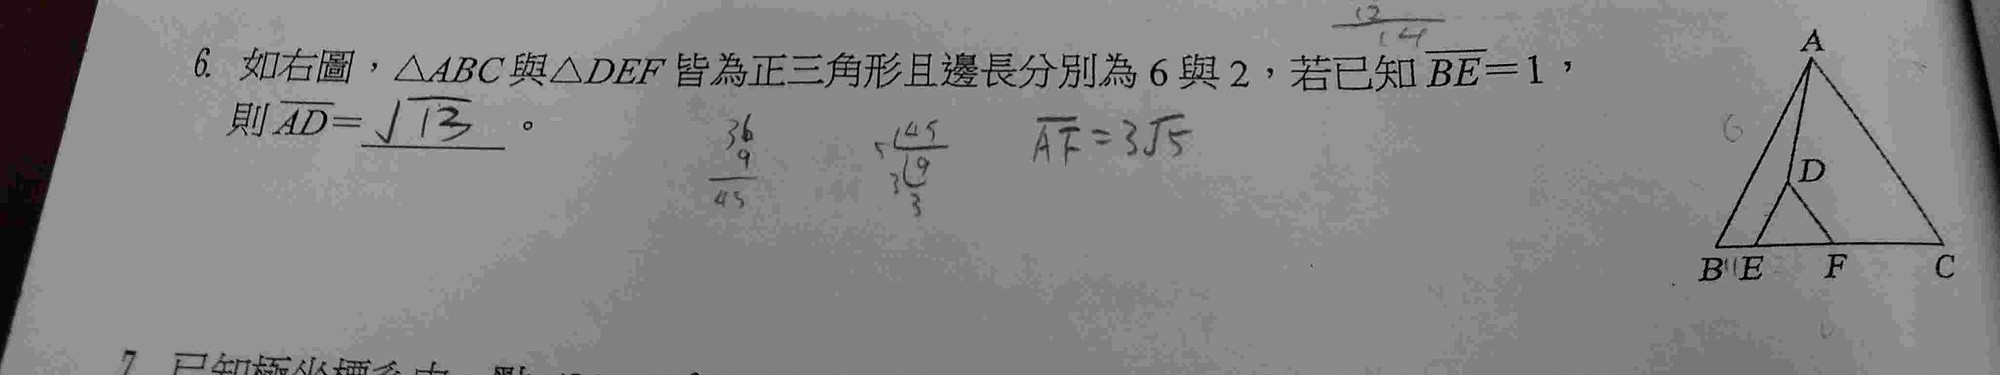 12
14
6. 如右圖，△ABC與△DEF皆為正三角形且邊長分別為6與2，若已知BE=1，
則AD=√13。
36
9
45
5 45
3 9
3
AF=3√5
A
6
D
B 1 E F C
7. 已知極坐標系中